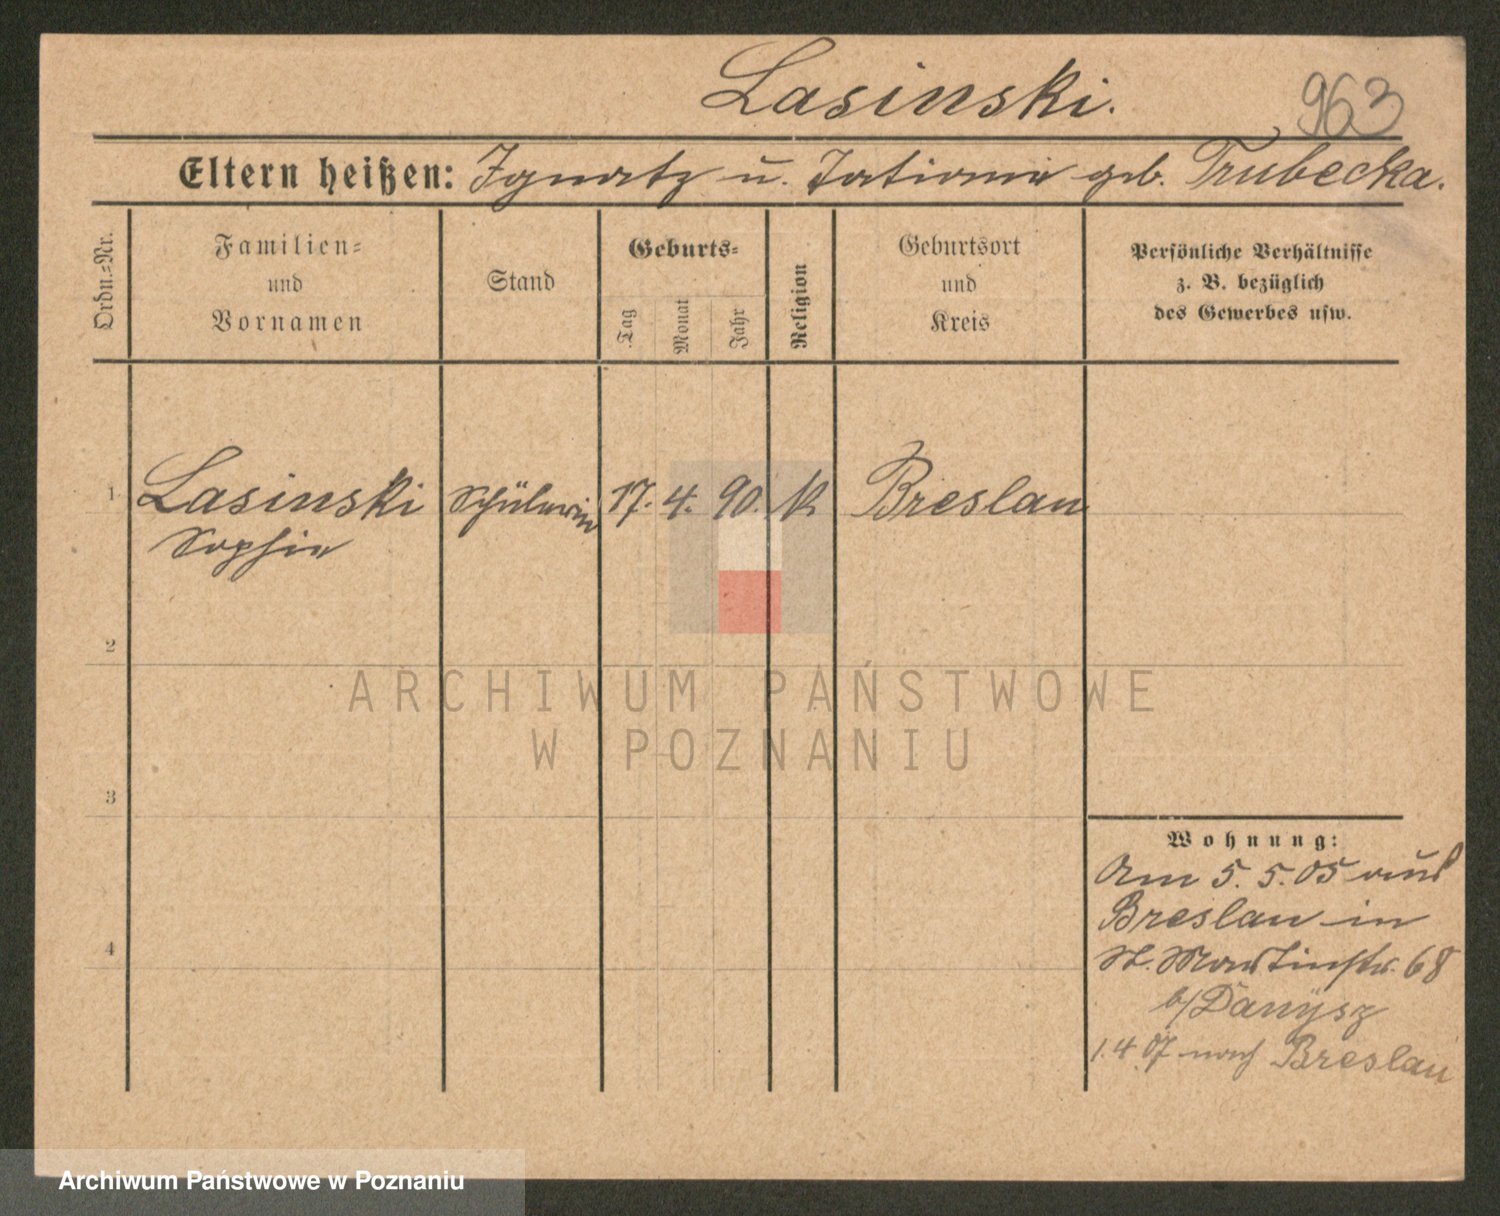 Lasinski.
963
Eltern heißen: Ignatz u. Tatiana geb. Trubecka.
Ordn.=Nr.
Familien=
und
Vornamen
Stand
Geburts=
Tag
Monat
Jahr
Religion
Geburtsort
und
Kreis
Persönliche Verhältnisse
z. B. bezüglich
des Gewerbes usw.
1 Lasinski Schülerin 17. 4. 90. k Breslau
Sophie
2
3
4
Wohnung:
Am 5. 5. 05 aus
Breslau in
St. Martinstr. 68
b/Danysz
1. 4. 07 nach Breslau
ARCHIWUM PAŃSTWOWE
W POZNANIU
Archiwum Państwowe w Poznaniu